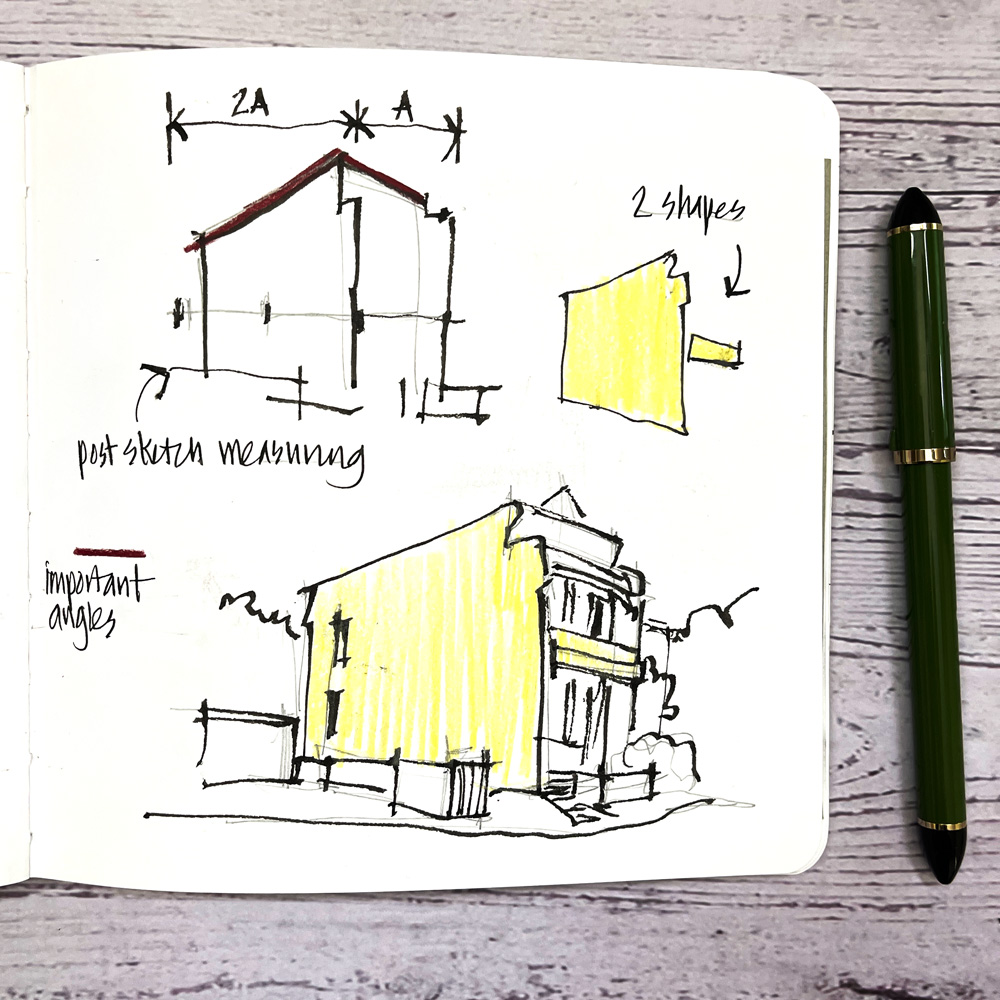 2A
A
2 shapes
post sketch measuring
important
angles